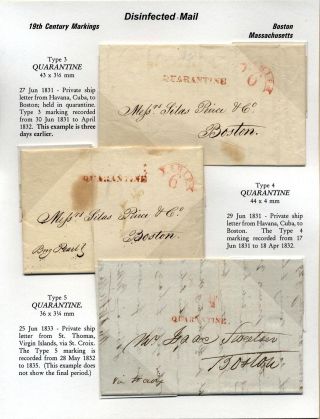 Disinfected Mail
19th Century Markings
Boston
Massachusetts
Type 3
QUARANTINE
43 x 3½ mm
27 Jun 1831 - Private ship
letter from Havana, Cuba, to
Boston; held in quarantine.
Type 3 marking recorded
from 30 Jun 1831 to April
1832. This example is three
days earlier.
QUARANTINE
6
Messrs Silas Peirce & Co.
Boston.
QUARANTINE
6
Messrs Silas Peirce & Co.
Boston.
Brig Pearl
Type 4
QUARANTINE
44 x 4 mm
29 Jun 1831 - Private ship
letter from Havana, Cuba, to
Boston. The Type 4
marking recorded from 17
Jun 1831 to 18 Apr 1832.
Type 5
QUARANTINE.
36 x 3¼ mm
25 Jun 1833 - Private ship
letter from St. Thomas,
Virgin Islands, via St. Croix.
The Type 5 marking is
recorded from 28 May 1832
to 1835. (This example does
not show the final period.)
QUARANTINE.
Mr. Isaac
Boston